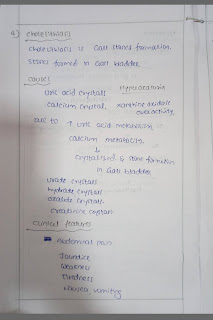 a) cholelithiasis
cholelithiasis is Gall stones formation.
stones formed in Gall bladder.
causes
uric acid crystals Hyperuricaemia
calcium crystal, xanthine oxidase
overactivity.
due to ↑ uric acid metabolism,
calcium metabolism
↓
crystallised & stone formation
in Gall bladder
urate crystals
hydrate crystals
oxalate crystals
creatinine crystals
clinical features
Abdominal pain
Jaundice
weakness
Tiredness
Nausea vomiting